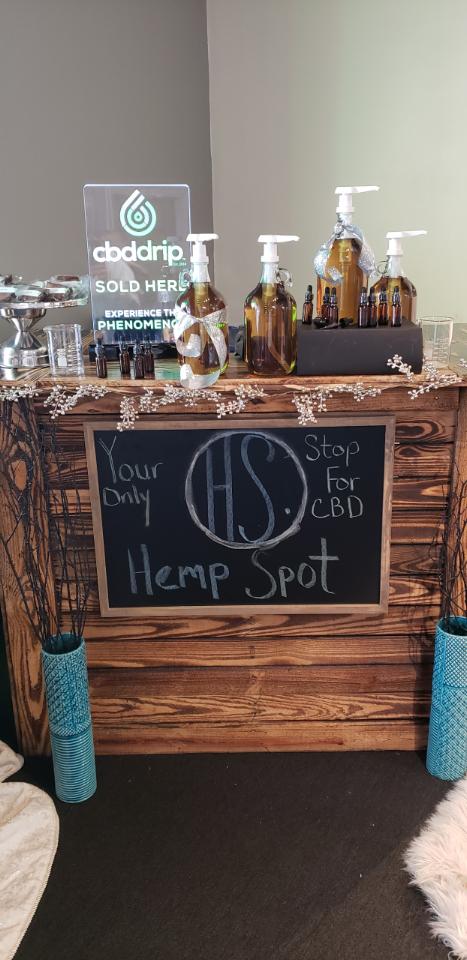 cbddrip
SOLD HERE
EXPERIENCE THE
Your
Only
HS.
Stop
For
CBD
Hemp Spot